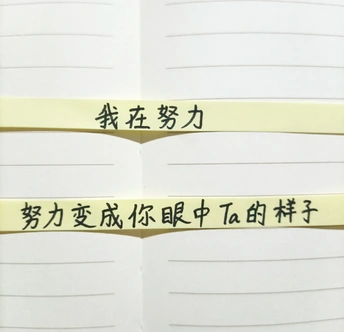 我在努力
努力变成你眼中Ta的样子